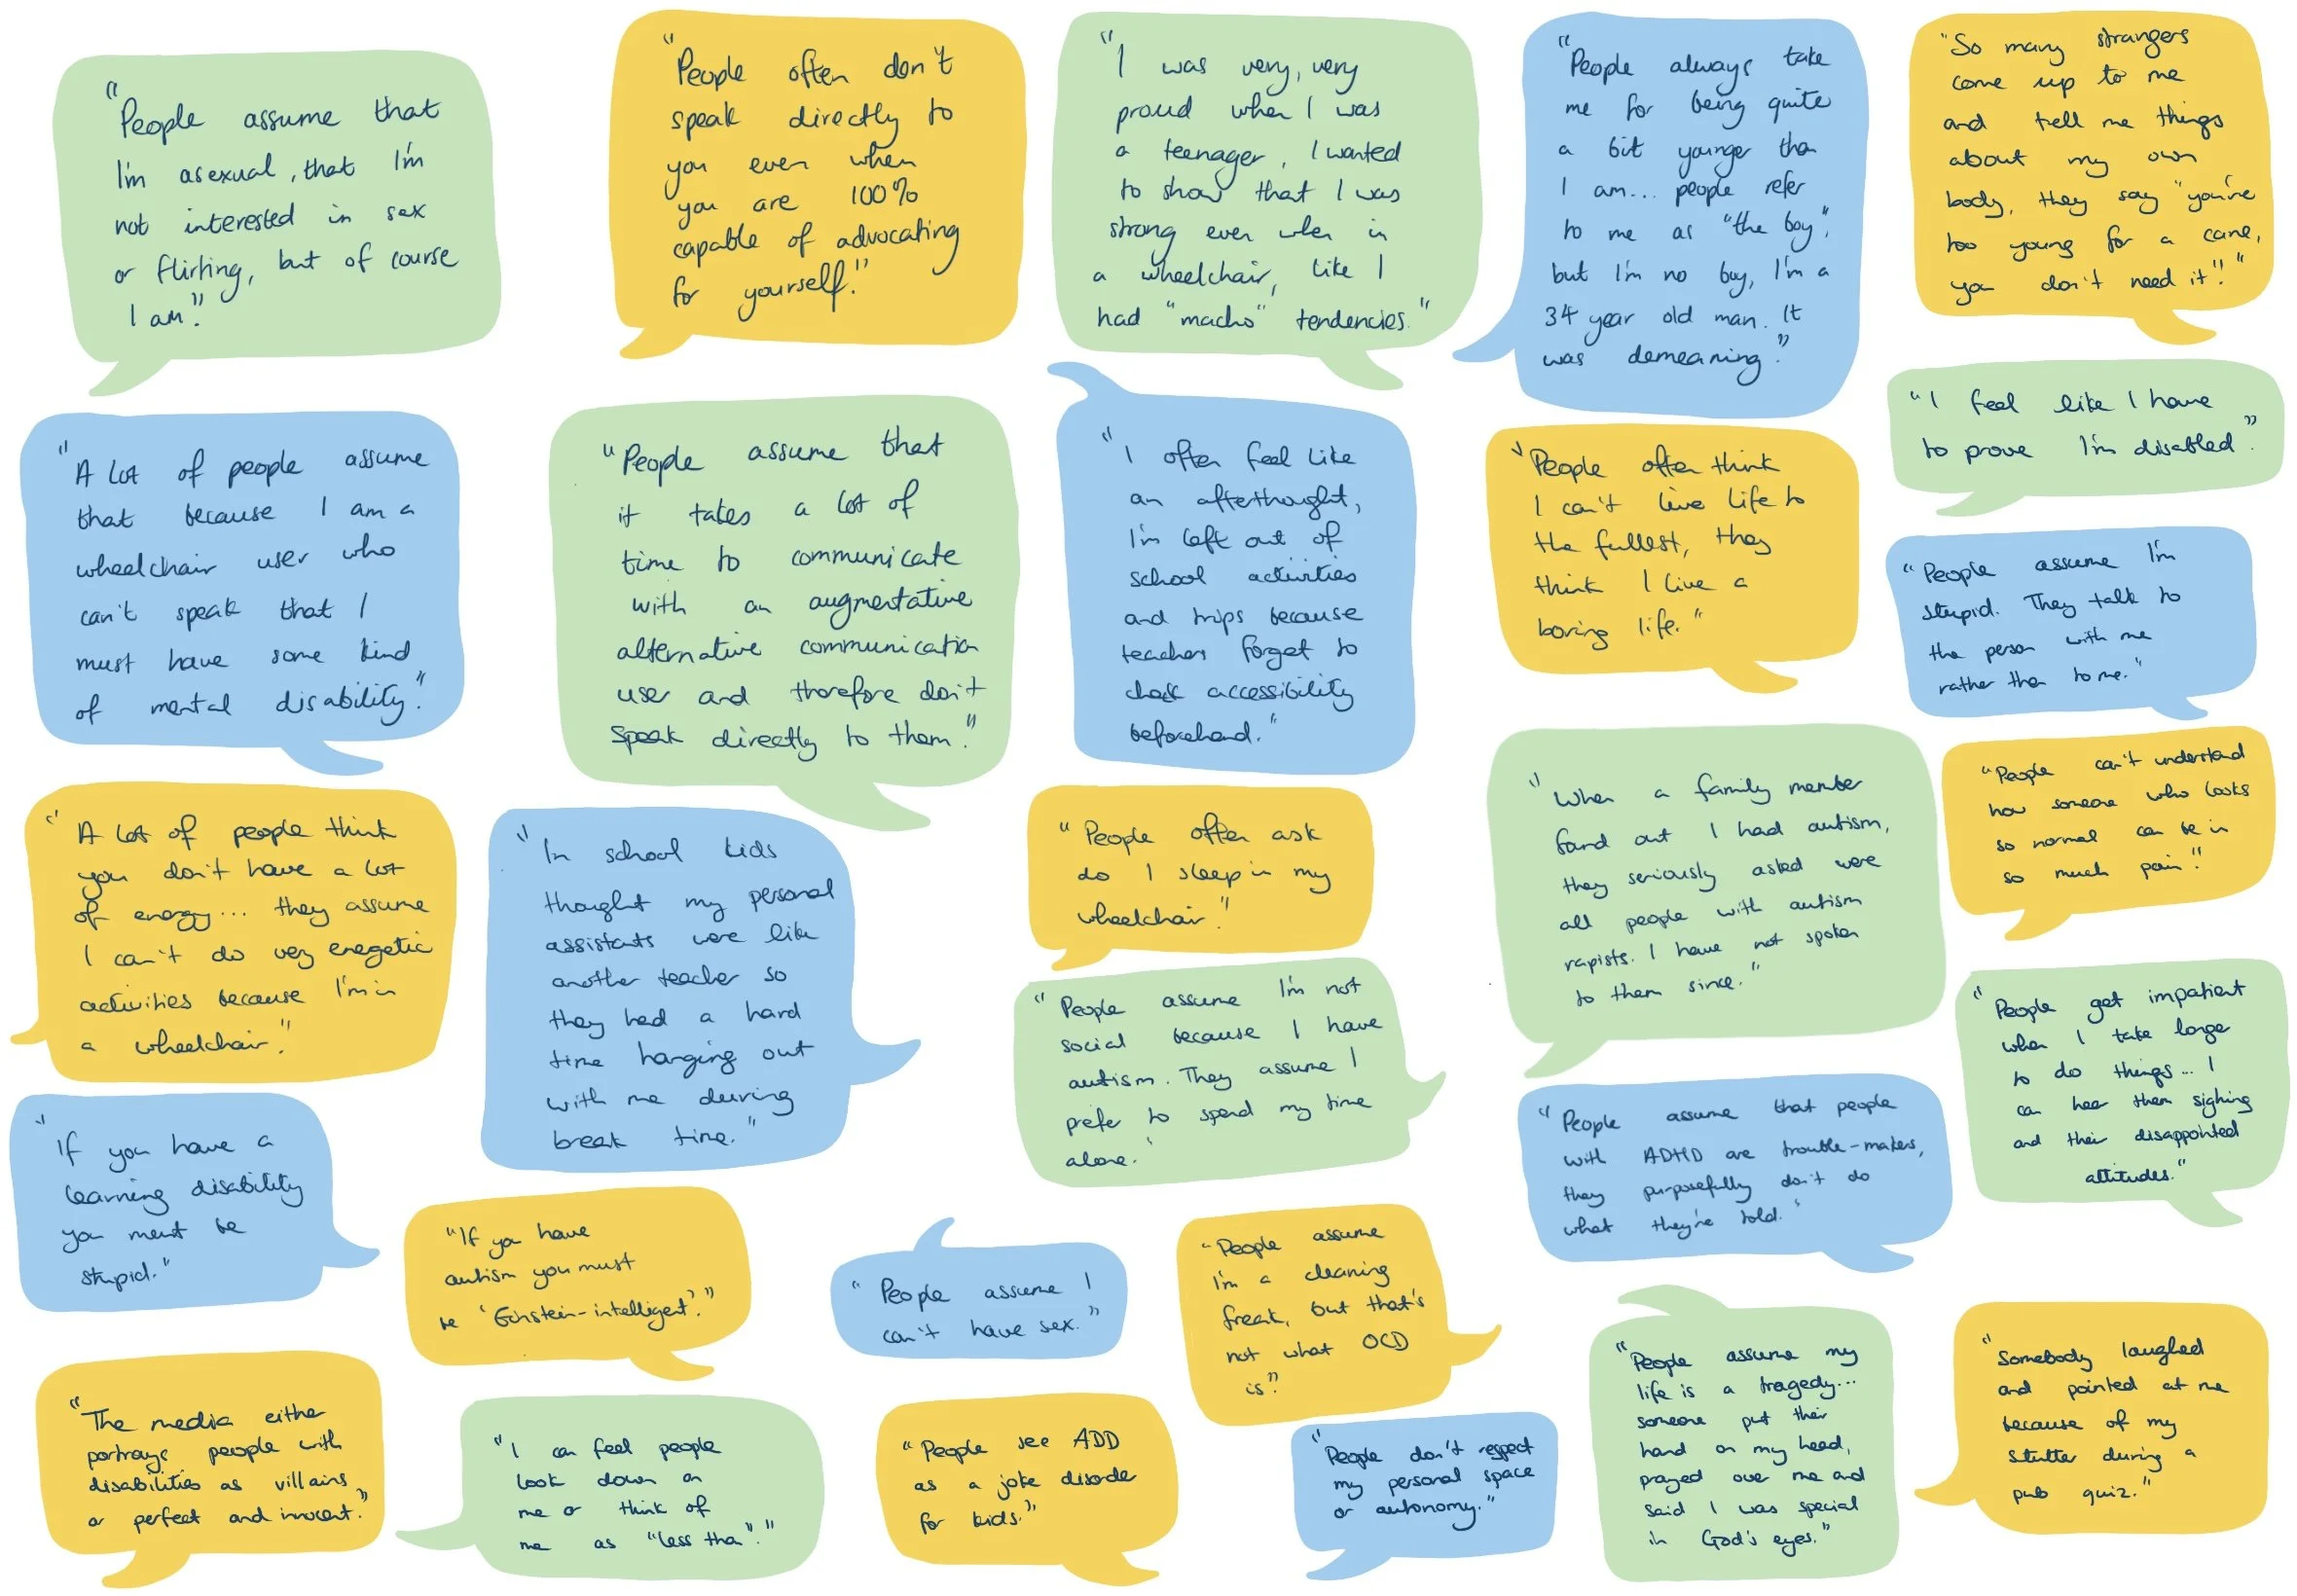 "People assume that
I'm asexual, that I'm
not interested in sex
or flirting, but of course
I am."
"People often don't
speak directly to
you even when
you are 100%
capable of advocating
for yourself."
"I was very, very
proud when I was
a teenager, I wanted
to show that I was
strong even when in
a wheelchair, like I
had "macho" tendencies."
"People always take
me for being quite
a bit younger than
I am... people refer
to me as "the boy",
but I'm no boy, I'm a
34 year old man. It
was demeaning."
"So many strangers
come up to me
and tell me things
about my own
body, they say "you're
too young for a cane,
you don't need it"."
"I feel like I have
to prove I'm disabled."
"A lot of people assume
that because I am a
wheelchair user who
can't speak that I
must have some kind
of mental disability."
"People assume that
it takes a lot of
time to communicate
with an augmentative
alternative communication
user and therefore don't
speak directly to them."
"I often feel like
an afterthought,
I'm left out of
school activities
and trips because
teachers forget to
check accessibility
beforehand."
"People often think
I can't live life to
the fullest, they
think I live a
boring life."
"People assume I'm
stupid. They talk to
the person with me
rather than to me."
"A lot of people think
you don't have a lot
of energy... they assume
I can't do very energetic
activities because I'm in
a wheelchair."
"In school kids
thought my personal
assistants were like
another teacher so
they had a hard
time hanging out
with me during
break time."
"People often ask
do I sleep in my
wheelchair"
"When a family member
found out I had autism,
they seriously asked were
all people with autism
rapists. I have not spoken
to them since."
"People can't understand
how someone who looks
so normal can be in
so much pain."
"People assume I'm not
social because I have
autism. They assume I
prefer to spend my time
alone."
"People get impatient
when I take longer
to do things... I
can hear them sighing
and their disappointed
attitudes."
"If you have a
learning disability
you must be
stupid."
"If you have
autism you must
be 'Einstein-intelligent'."
"People assume I
can't have sex."
"People assume
I'm a cleaning
freak, but that's
not what OCD
is"
"People assume that people
with ADHD are trouble-makers,
they purposefully don't do
what they're told."
"The media either
portrays people with
disabilities as villains
or perfect and innocent."
"I can feel people
look down on
me or think of
me as "less than"."
"People see ADD
as a joke disorder
for kids."
"People don't respect
my personal space
or autonomy."
"People assume my
life is a tragedy...
someone put their
hand on my head,
prayed over me and
said I was special
in God's eyes."
"Somebody laughed
and pointed at me
because of my
stutter during a
pub quiz."